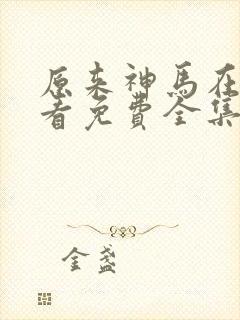 原来神马在
看免费全集
金盏